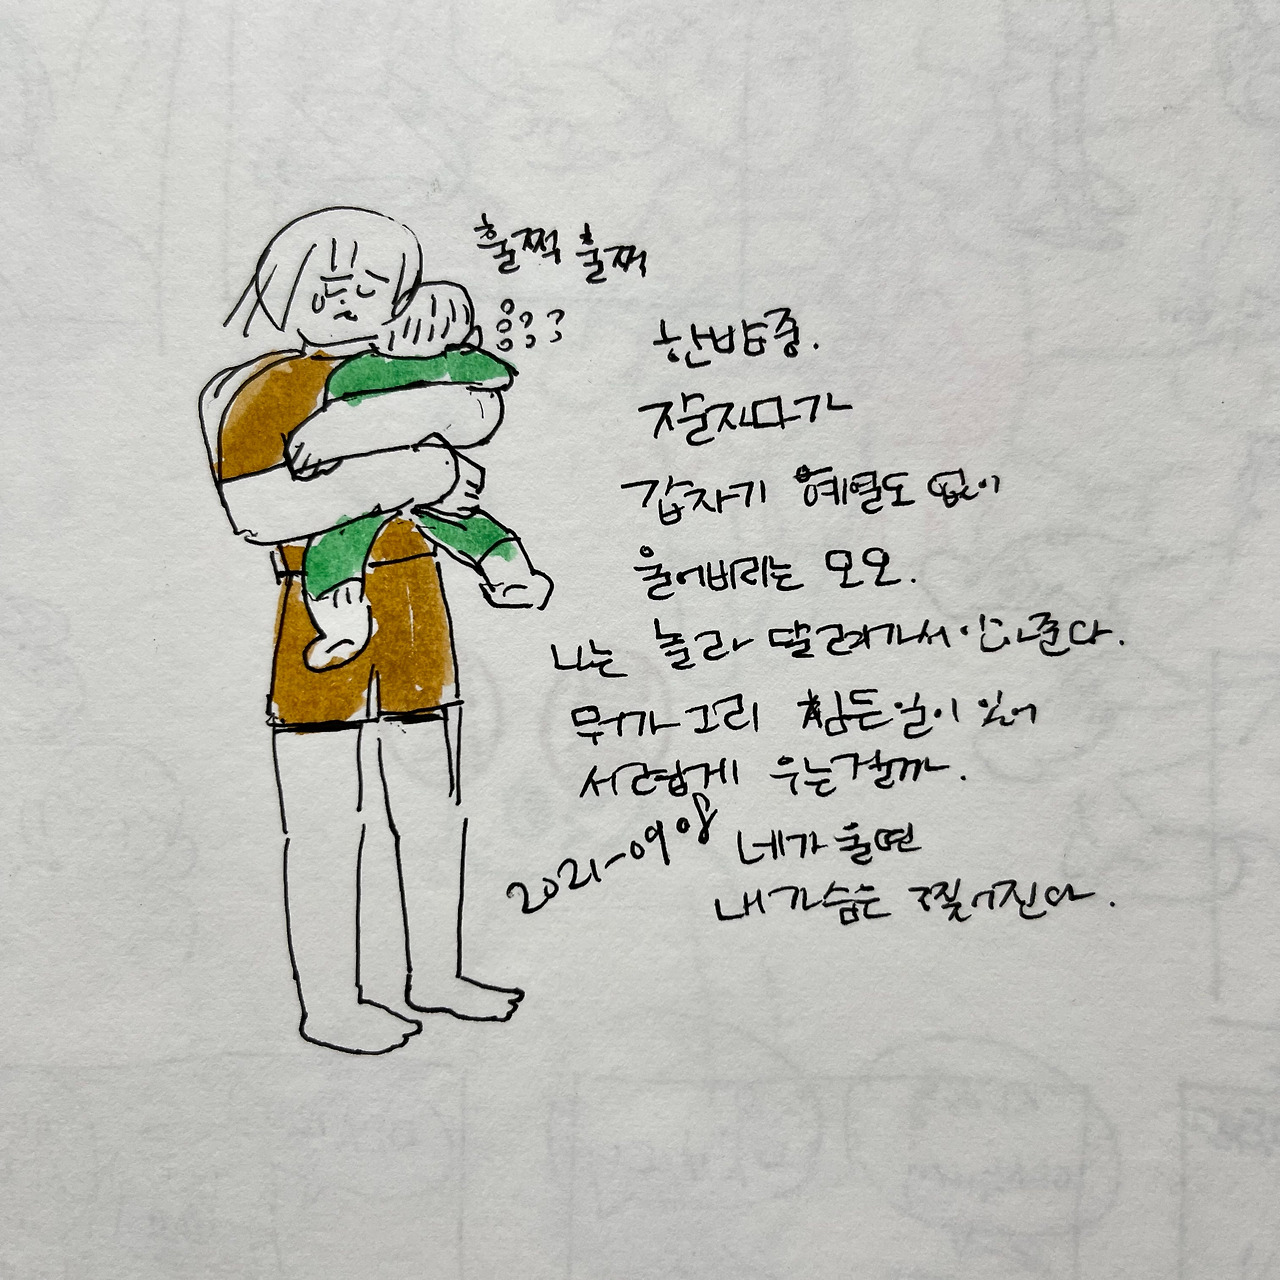 훌쩍 훌쩍
한밤중.
자다가
갑자기 예열도 없이
울어버리는 모오.
나는 놀라 달려가서 안아준다.
뭐가 그리 힘든일이 있어
서럽게 우는걸까.
2021-09
네가 울면
내 가슴은 찢어진다.